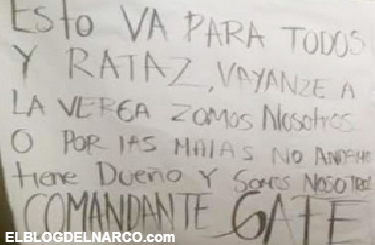 Esto VA PARA TODOS
Y RATAZ, VAYANZE A
LA VERGA ZOMOS NOSOTROS
O POR LAS MALAS NO
tiene Dueño Y SOMOS NOSOTROS
COMANDANTE GAFE
ELBLOGDELNARCO.COM